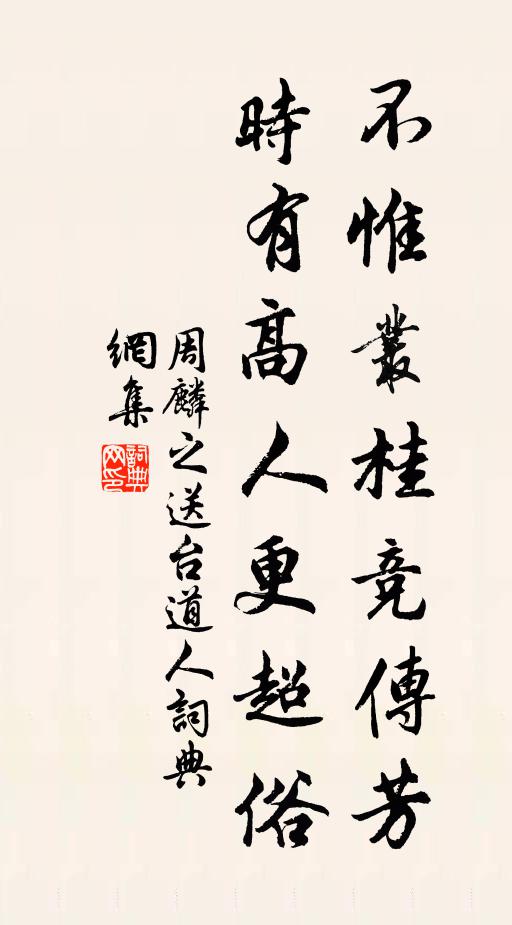 不惟叢桂竞傳芳
時有高人更超俗
周麟之送台道人詞典
網集
詞典网印